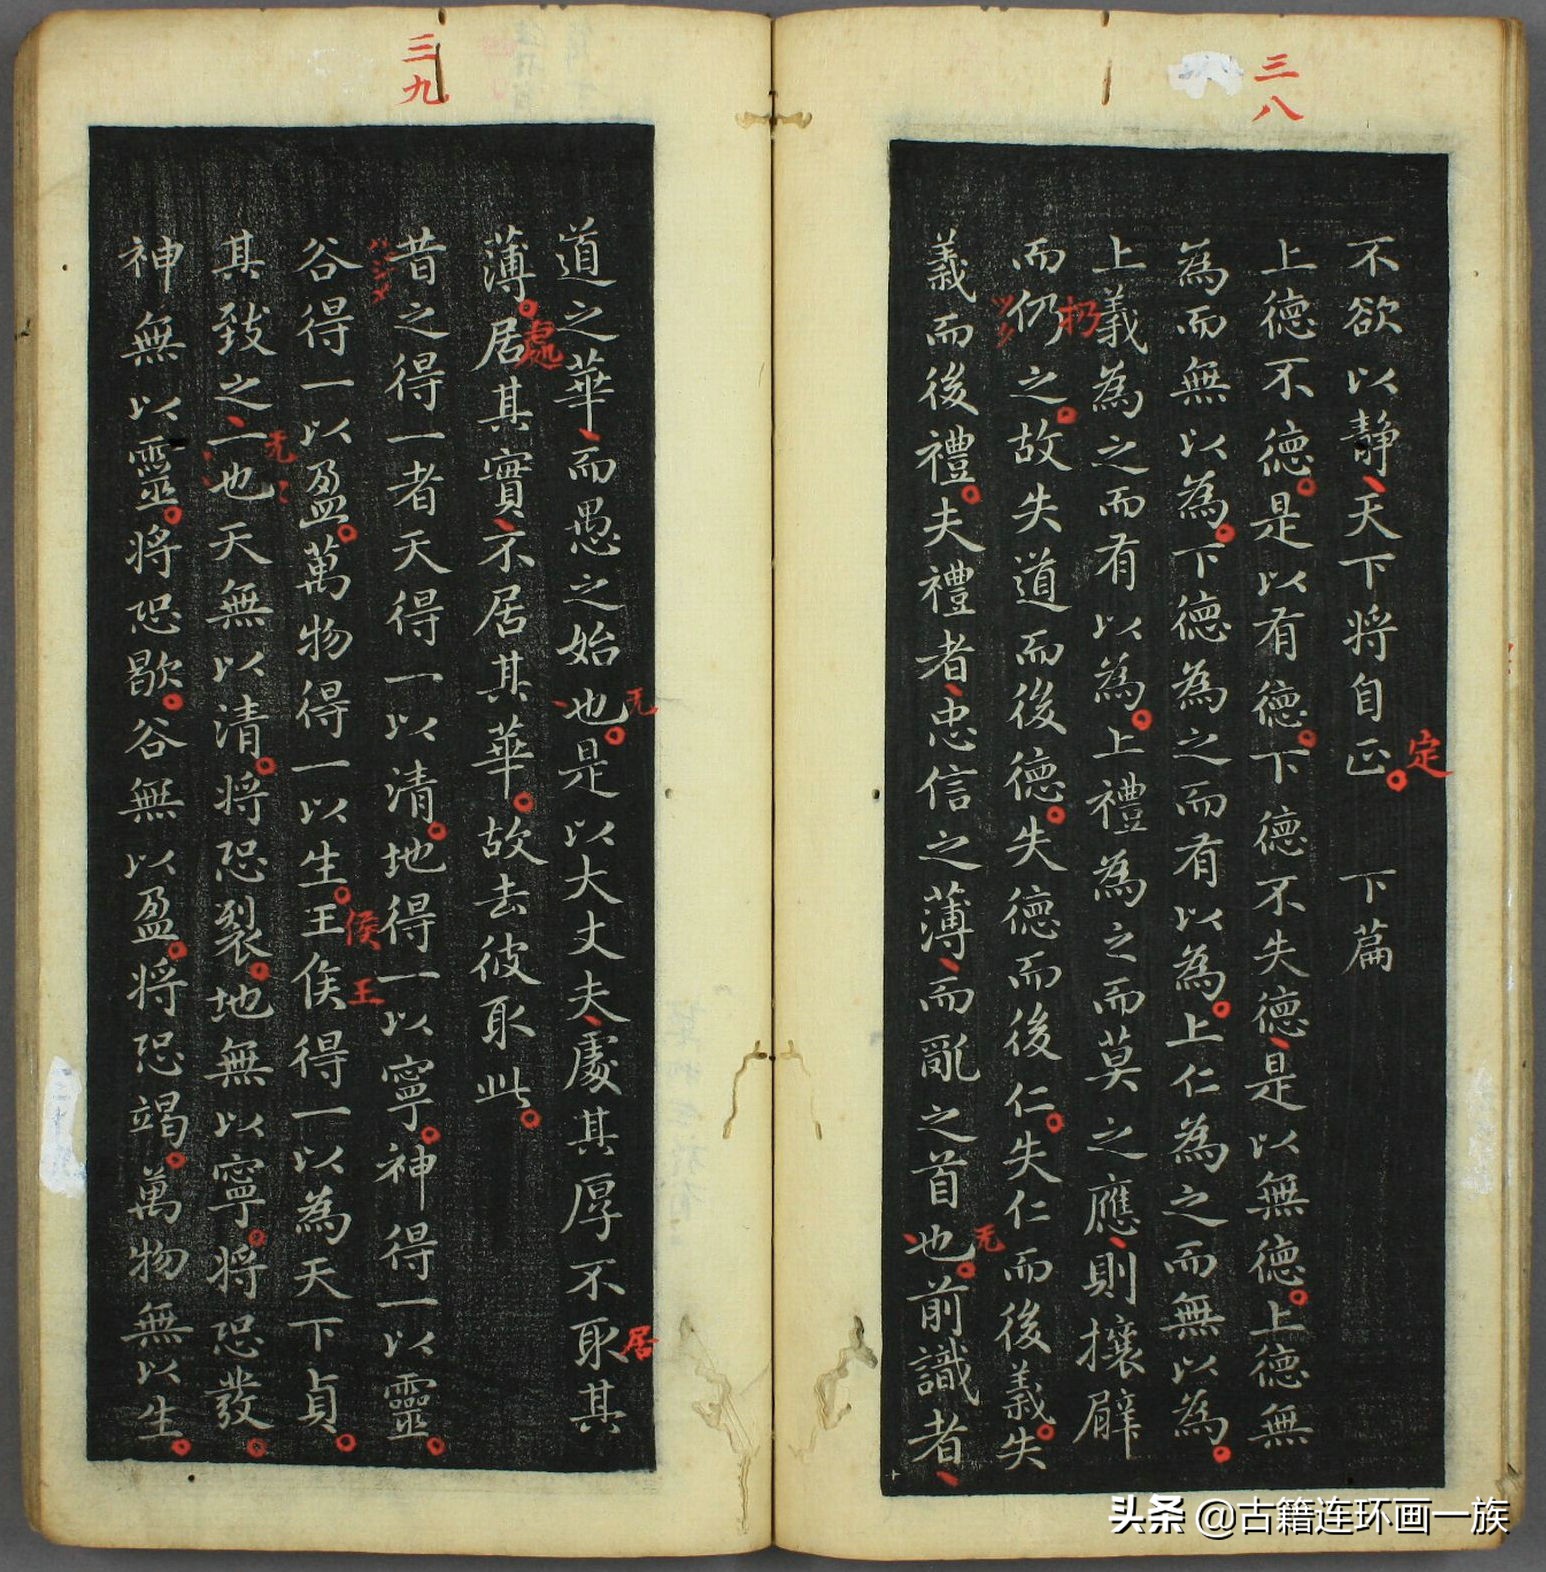 三八
不欲以靜天下将自正 下篇
定
上德不德是以有德下德不失德是以無德上德無
為而無以為下德為之而有以為上仁為之而無以為
上義為之而有以為上禮為之而莫之應則攘臂
扔
而仍之故失道而後德失德而後仁失仁而後義失
義而後禮夫禮者忠信之薄而亂之首也前識者
无
三九
道之華而愚之始也是以大丈夫處其厚不取其
无
居
薄居其實不居其華故去彼取此
處
昔之得一者天得一以清地得一以寧神得一以靈
谷得一以盈萬物得一以生王侯得一以為天下貞
侯王
其致之一也天無以清将恐裂地無以寧将恐發
无
神無以靈将恐歇谷無以盈将恐竭萬物無以生
头条 @古籍连环画一族